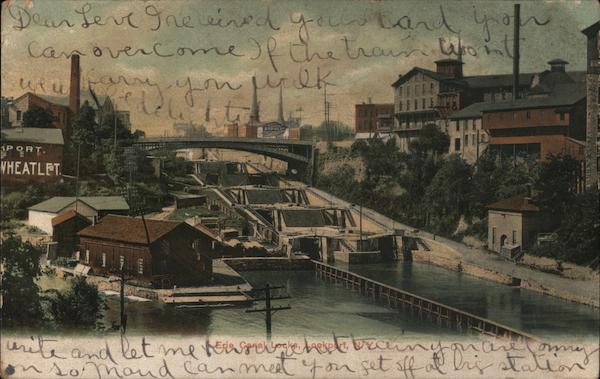 Dear Leve I recieved your card you
can overcome If the train wont
carry you walk
PORT.
WHEATLET
Erie Canal Locks, Lockport, N.Y.
write and let me know just when you are coming
on so maud can meet you get off at big station